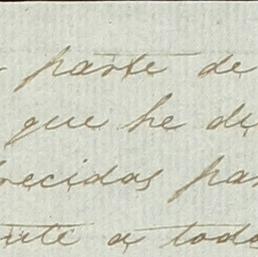 parte de
que he de
recidas pa
nte a toda